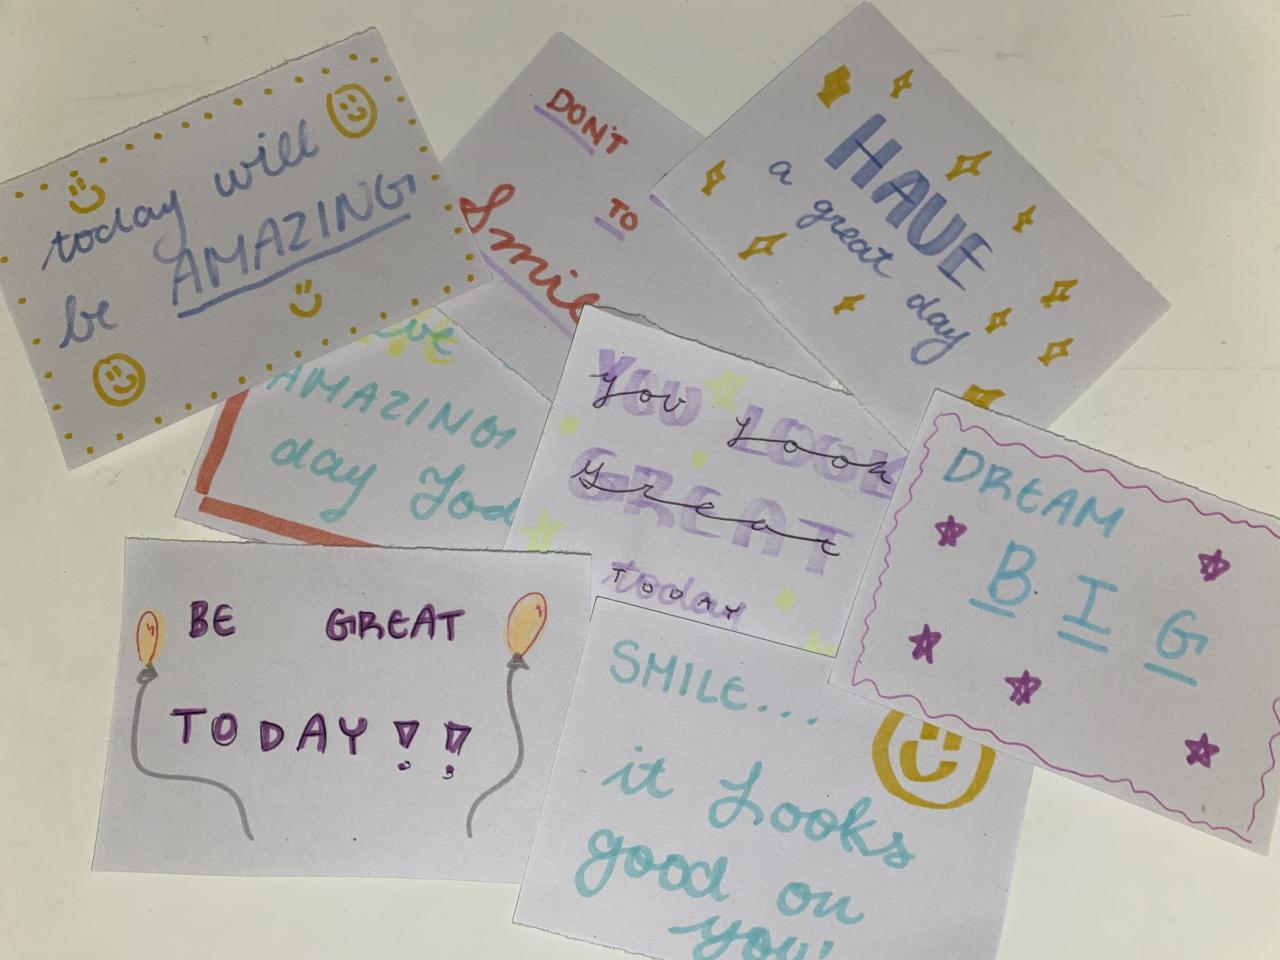 today will
be AMAZING
DON'T
TO
Smile
HAVE
a great day
AMAZING
day
YOU LOOK
you look
GREAT
great
today
TODAY
DREAM
BIG
BE GREAT
TODAY!!
SMILE...
it Looks
good on
you!